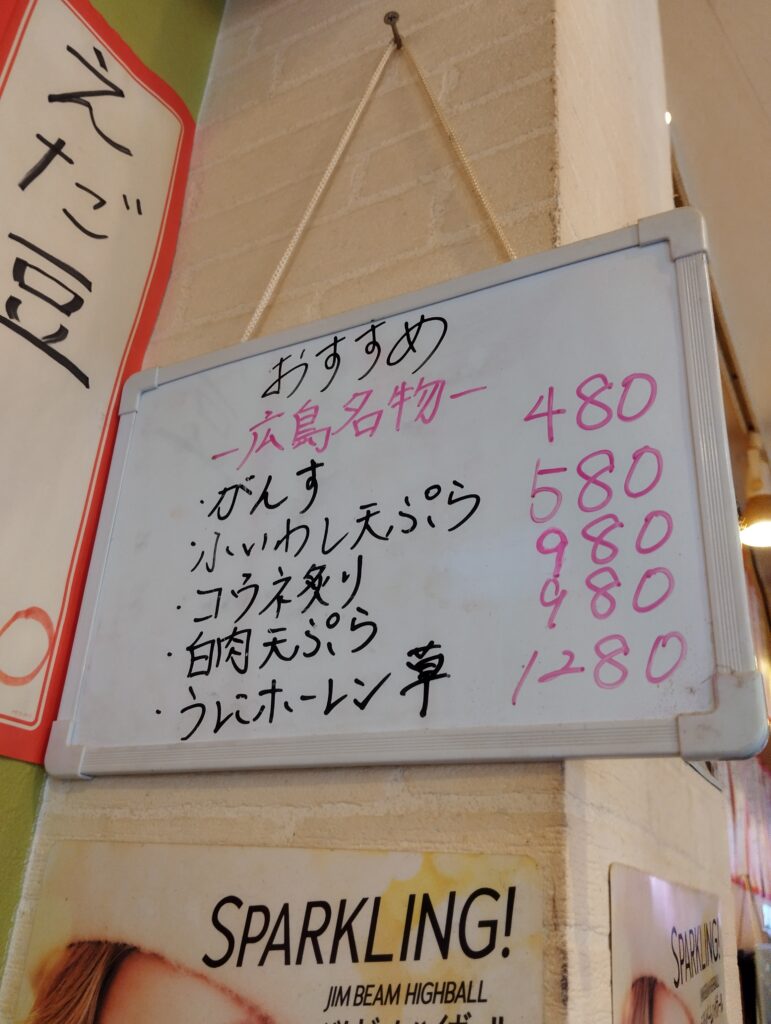 えだご豆
おすすめ
ー広島名物ー
・がんす 480
小いわし天ぷら 580
・コウネ炙り 980
・白肉天ぷら 980
・うにホーレン草 1280
SPARKLING!
JIM BEAM HIGHBALL
SPARKLING!